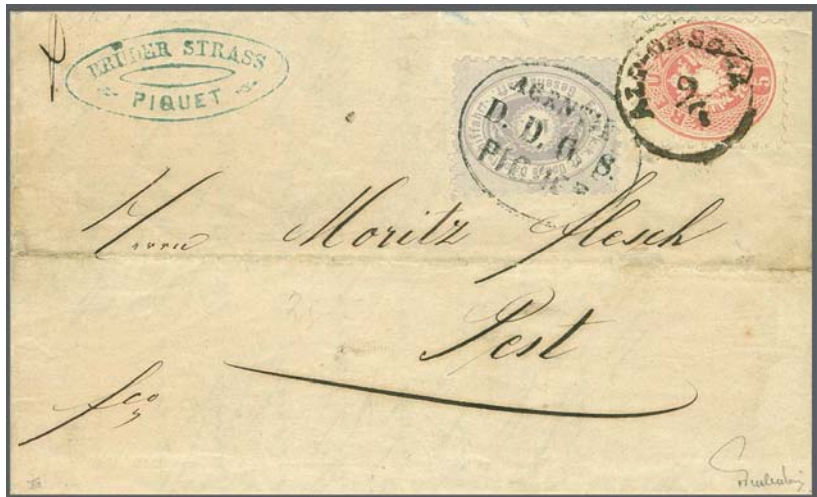 BRÜDER STRASS
PIQUET
AGENTIE
D. D. G. S.
PIQUET
ALT-ORSOVA
9/6
5
Herrn Moritz Flesch
Pest
fco